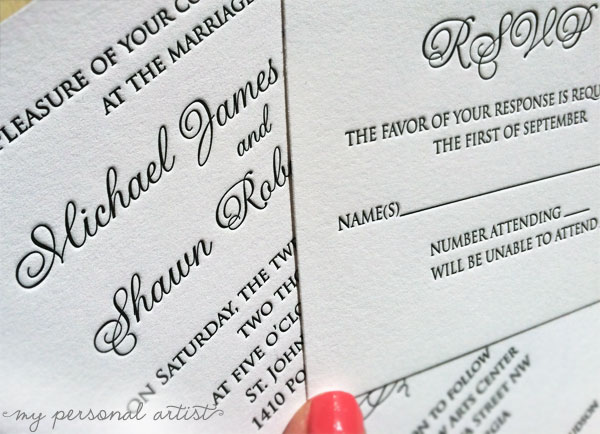 PLEASURE OF YOUR
AT THE MARRIAGE
Michael James
and
Shawn
ON SATURDAY, THE
TWO
AT FIVE O'CLO
ST. JOHN
1410 PO
RSVP
THE FAVOR OF YOUR RESPONSE IS REQU
THE FIRST OF SEPTEMBER
NAME(S)
NUMBER ATTENDING
WILL BE UNABLE TO ATTEND
TO FOLLOW
ARTS CENTER
STREET NW
my personal artist